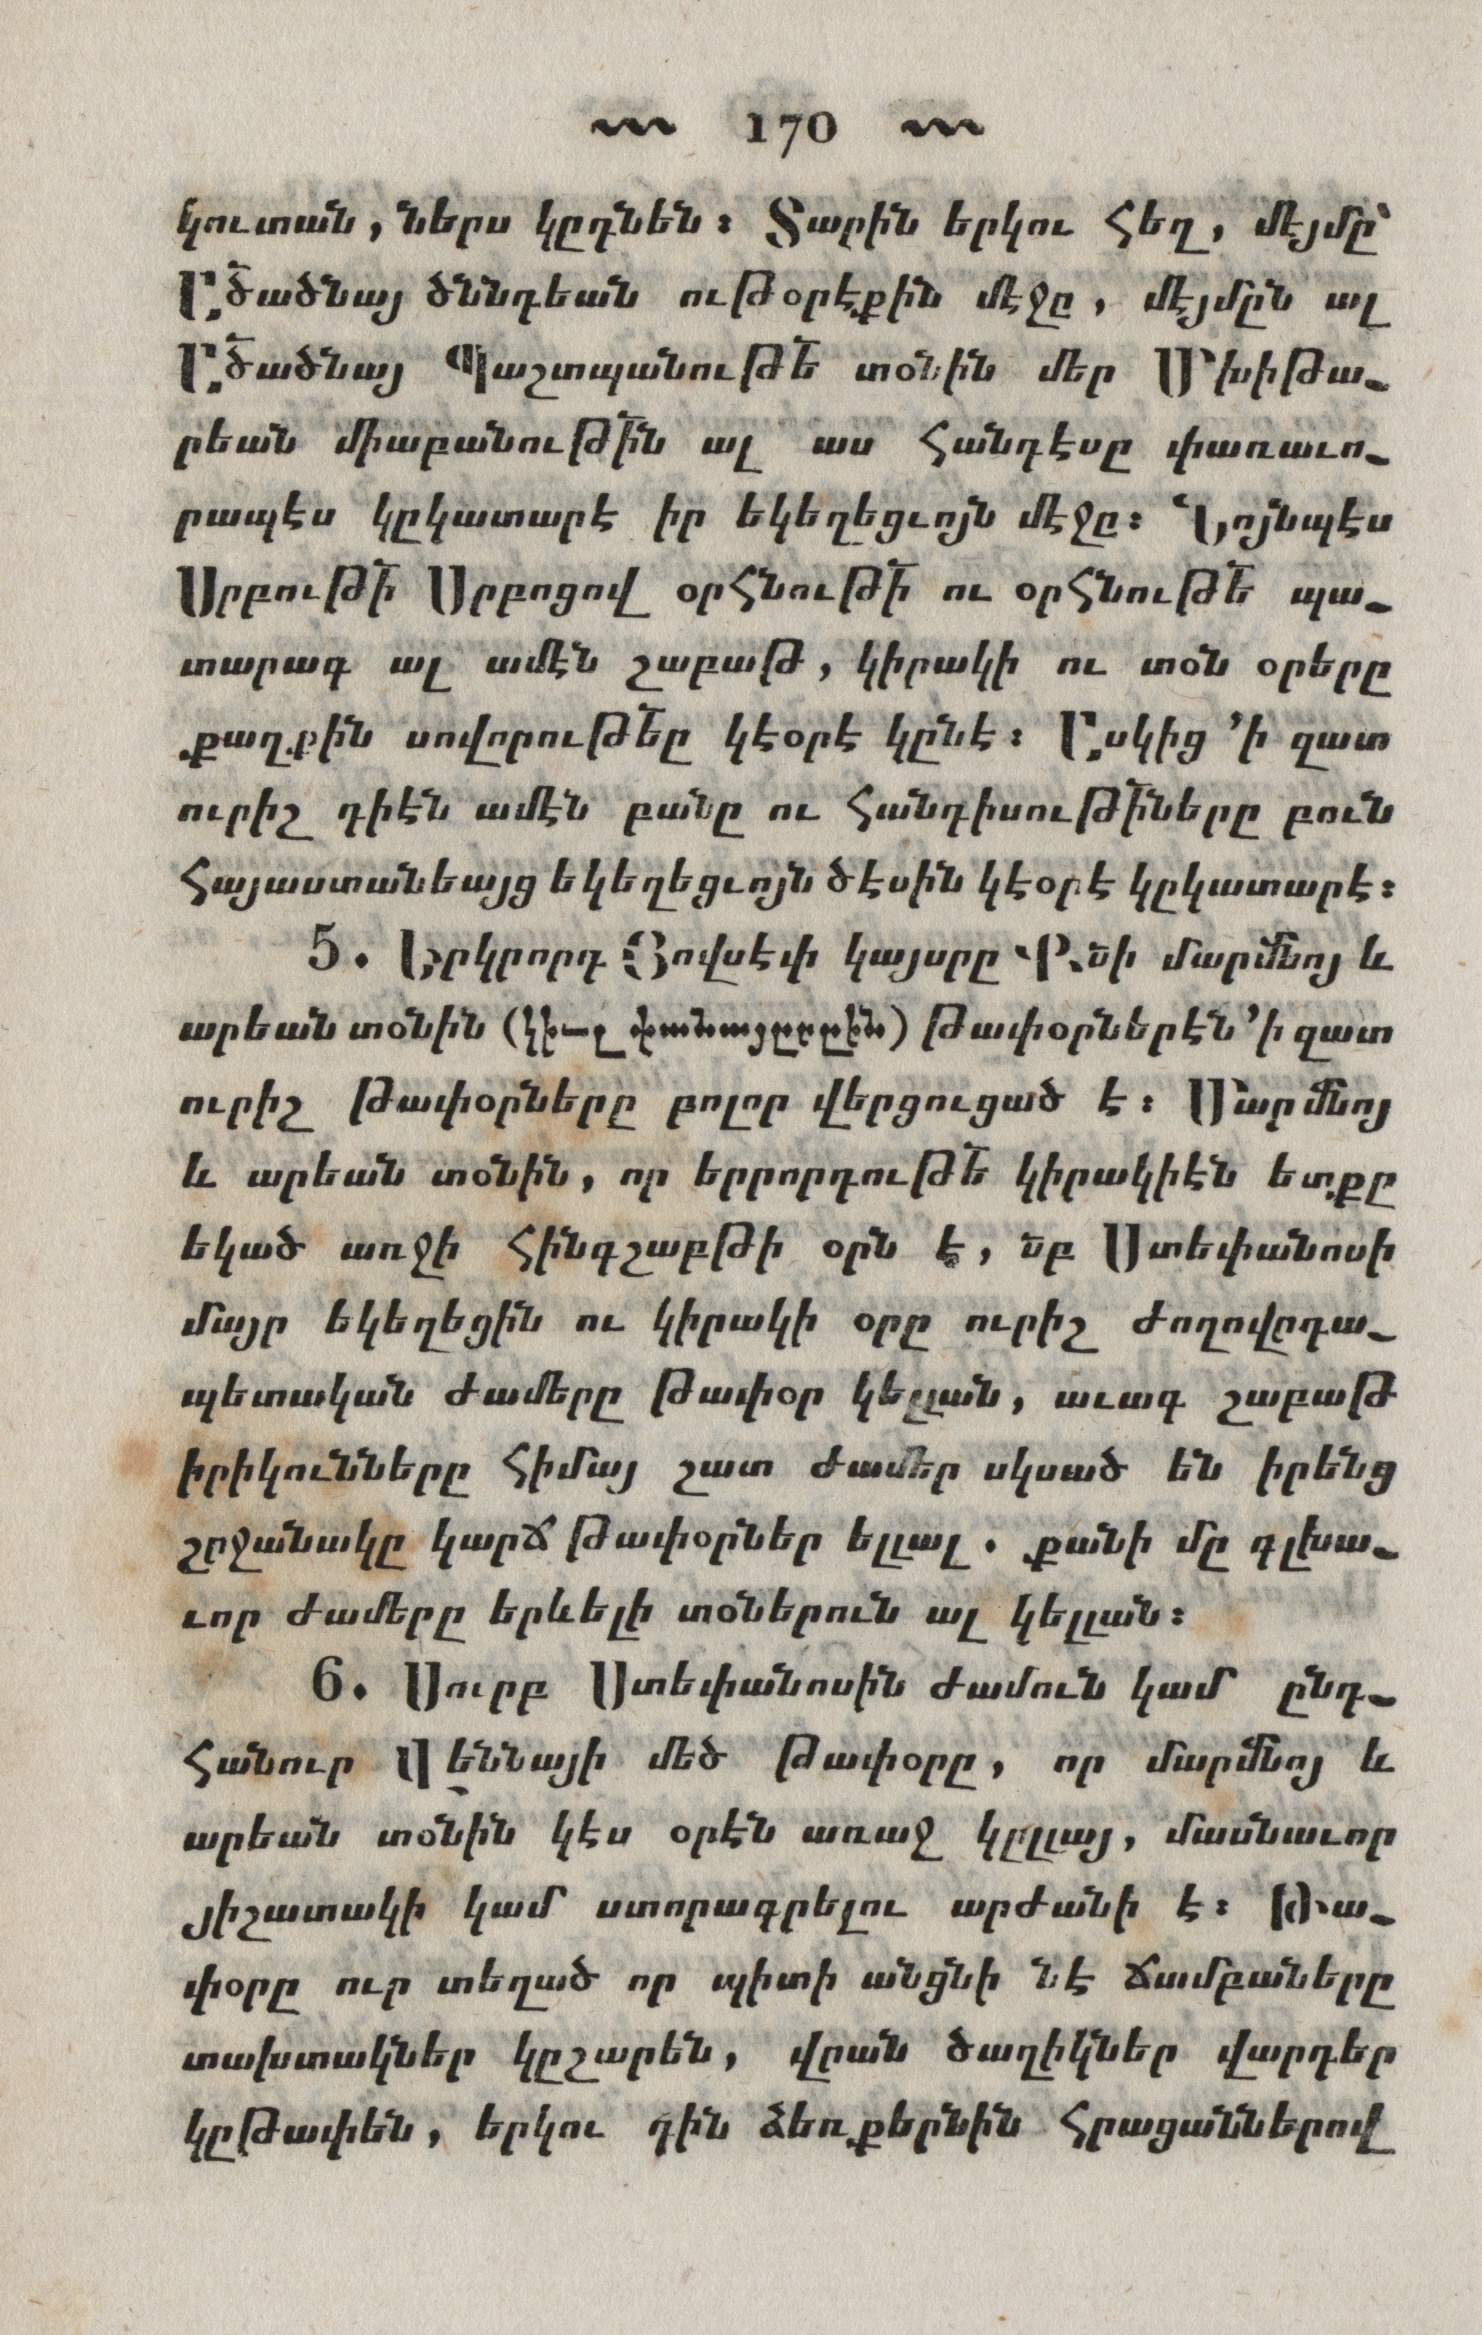 170
կուտան, ներս կըդնեն։ Տարին երկու հեղ, մէյմը՝
Ը̃ծածնայ ծննդեան ութօրէքին մէջը, մէյմըն ալ
Ը̃ծածնայ Պաշտպանութե̃ տօնին մեր Մխիթա-
րեան միաբանութի̃ն ալ աս հանդէսը փառաւո-
րապէս կըկատարէ իր եկեղեցւոյն մէջը։ Նոյնպէս
Սրբութի̃ Սրբոցով օրհնութի̃ ու օրհնութե̃ պա-
տարագ ալ ամէն շաբաթ, կիրակի ու տօն օրերը
քաղքին սովորութե̃ը կէօրէ կընէ։ Ըսկից ’ի զատ
ուրիշ դիէն ամէն բանը ու հանդիսութի̃ները բուն
Հայաստանեայց եկեղեցւոյն ծէսին կէօրէ կըկատարէ։
5. Երկրորդ Յովսէփ կայսրը Ք̃նի մարմ̃նոյ և
արեան տօնին () թափօրներէն ’ի զատ
ուրիշ թափօրները բոլոր վերցուցած է։ Մարմ̃նոյ
և արեան տօնին, որ երրորդութե̃ կիրակիէն ետքը
եկած առջի հինգշաբթի օրն է, ս̃բ Ստեփանոսի
մայր եկեղեցին ու կիրակի օրը ուրիշ ժողովրդա-
պետական ժամերը թափօր կելլան, աւագ շաբաթ
իրիկունները հիմայ շատ ժամեր սկսած են իրենց
շըջանակը կարճ թափօրներ ելլալ. քանի մը գլխա-
ւոր ժամերը երևելի տօներուն ալ կելլան։
6. Սուրբ Ստեփանոսին ժամուն կամ ընդ-
հանուր Վեննայի մեծ թափօրը, որ մարմ̃նոյ և
արեան տօնին կէս օրէն առաջ կըլլայ, մասնաւոր
յիշատակի կամ ստորագրելու արժանի է։ Թա-
փօրը ուր տեղած որ պիտի անցնի նէ ճամբաները
տախտակներ կըշարեն, վրան ծաղիկներ վարդեր
կըթափեն, երկու դին ձեռքերնին հրացաններով